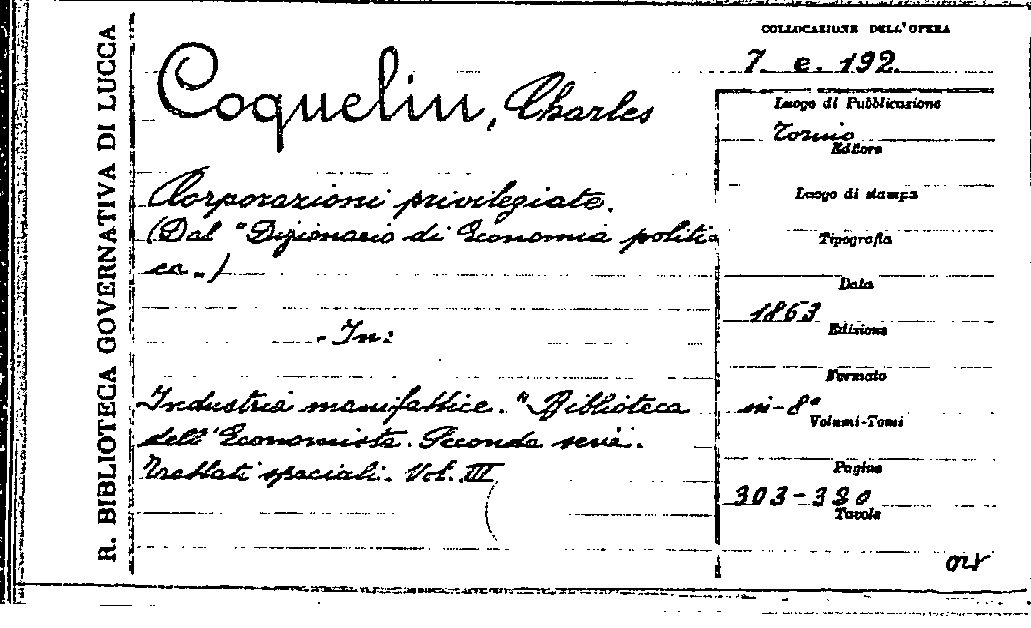 R. BIBLIOTECA GOVERNATIVA DI LUCCA
Coquelin, Charles
Corporazioni privilegiate.
(Dal "Dizionario di Economia politi
ca„)
- In:
Industria manifattice. "Biblioteca
dell'Economista. Seconda serie.
Trattati speciali. Vol. III
COLLOCAZIONE DELL'OPERA
7. e. 192.
Luogo di Pubblicazione
Torino
Editore
Luogo di stampa
Tipografia
Data
1863
Edizione
Formato
in-8°
Volumi-Tomi
Pagine
303-380
Tavole